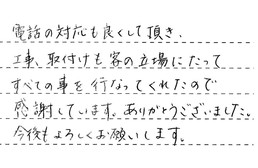 電話の対応も良くして頂き、
工事、取付けも客の立場にたって
すべての事を行なってくれたので
感謝しています。ありがとうございました。
今後もよろしくお願いします。